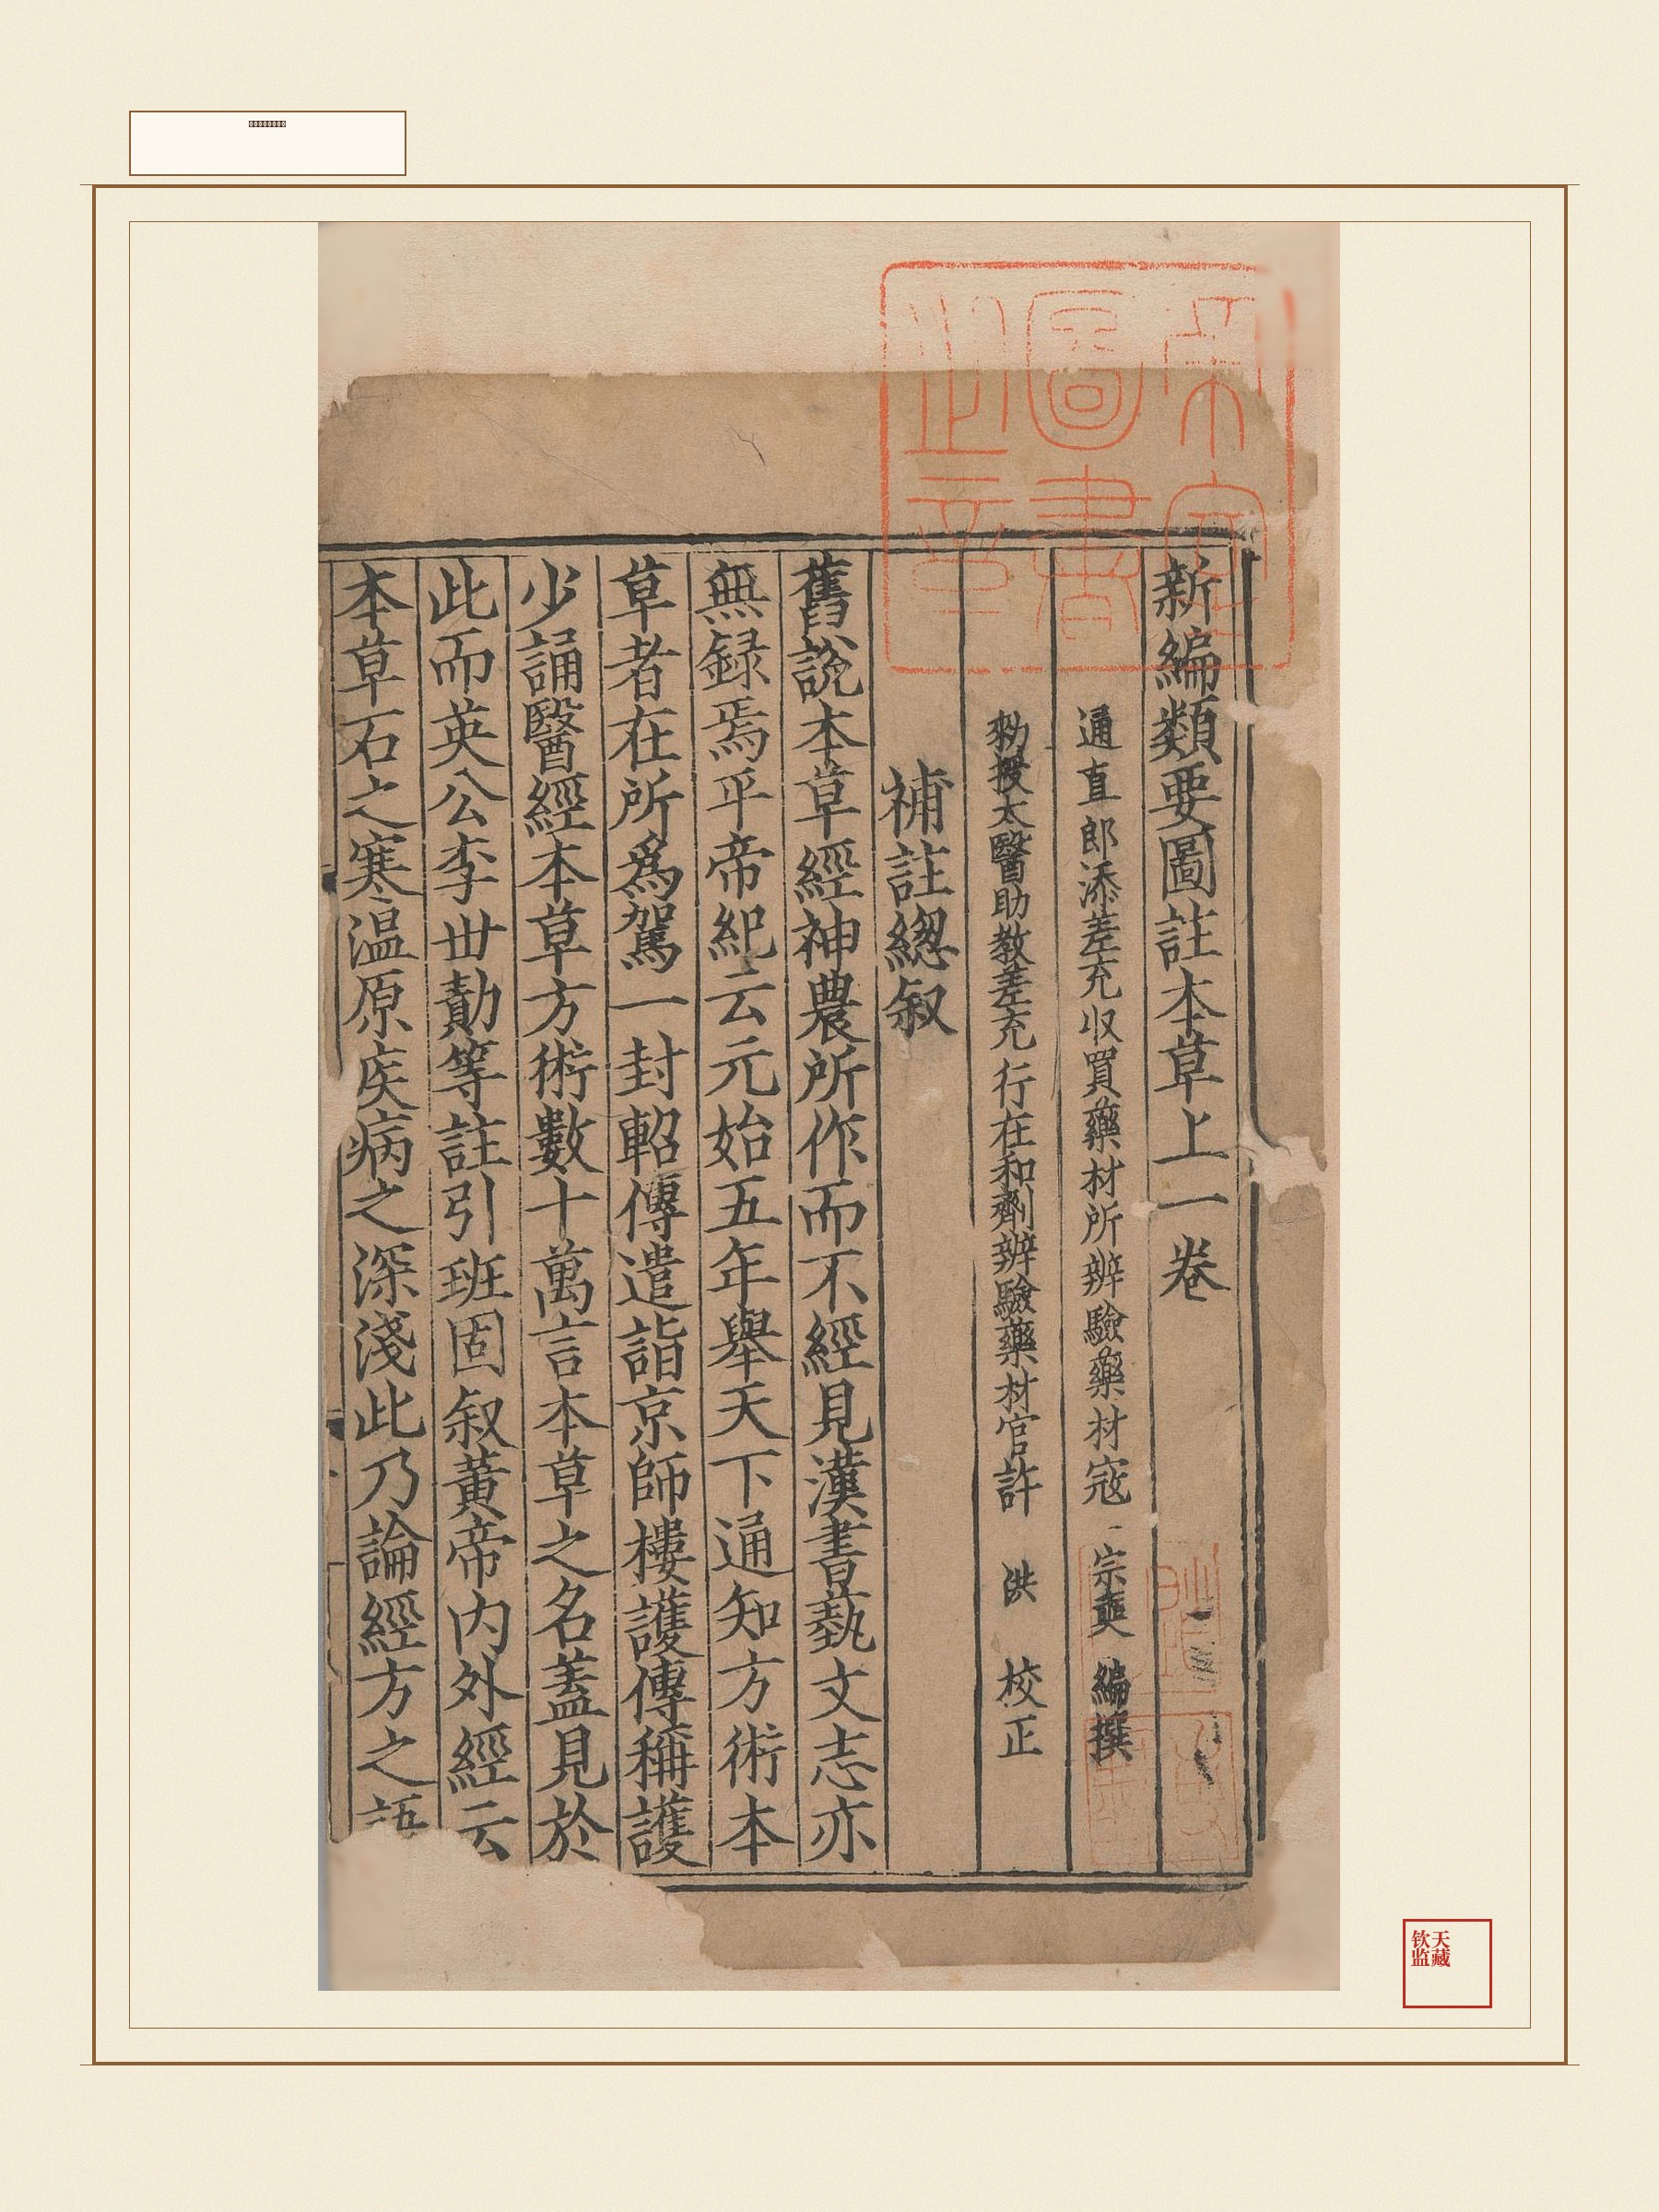 新編類要圖註本草上一卷
通直郎添差充收買藥材所辨驗藥材寇宗奭編撰
勑授太醫助教差充行在和劑辨驗藥材官許洪校正
補註緫叙
舊說本草經神農所作而不經見漢書藝文志亦
無録焉平帝紀云元始五年舉天下通知方術本
草者在所爲駕一封軺傳遣詣京師樓護傳稱護
少誦醫經本草方術數十萬言本草之名蓋見於
此而英公李世勣等註引班固叙黃帝内外經云
本草石之寒温原疾病之深淺此乃論經方之語
圖書
之章
天藏
钦监